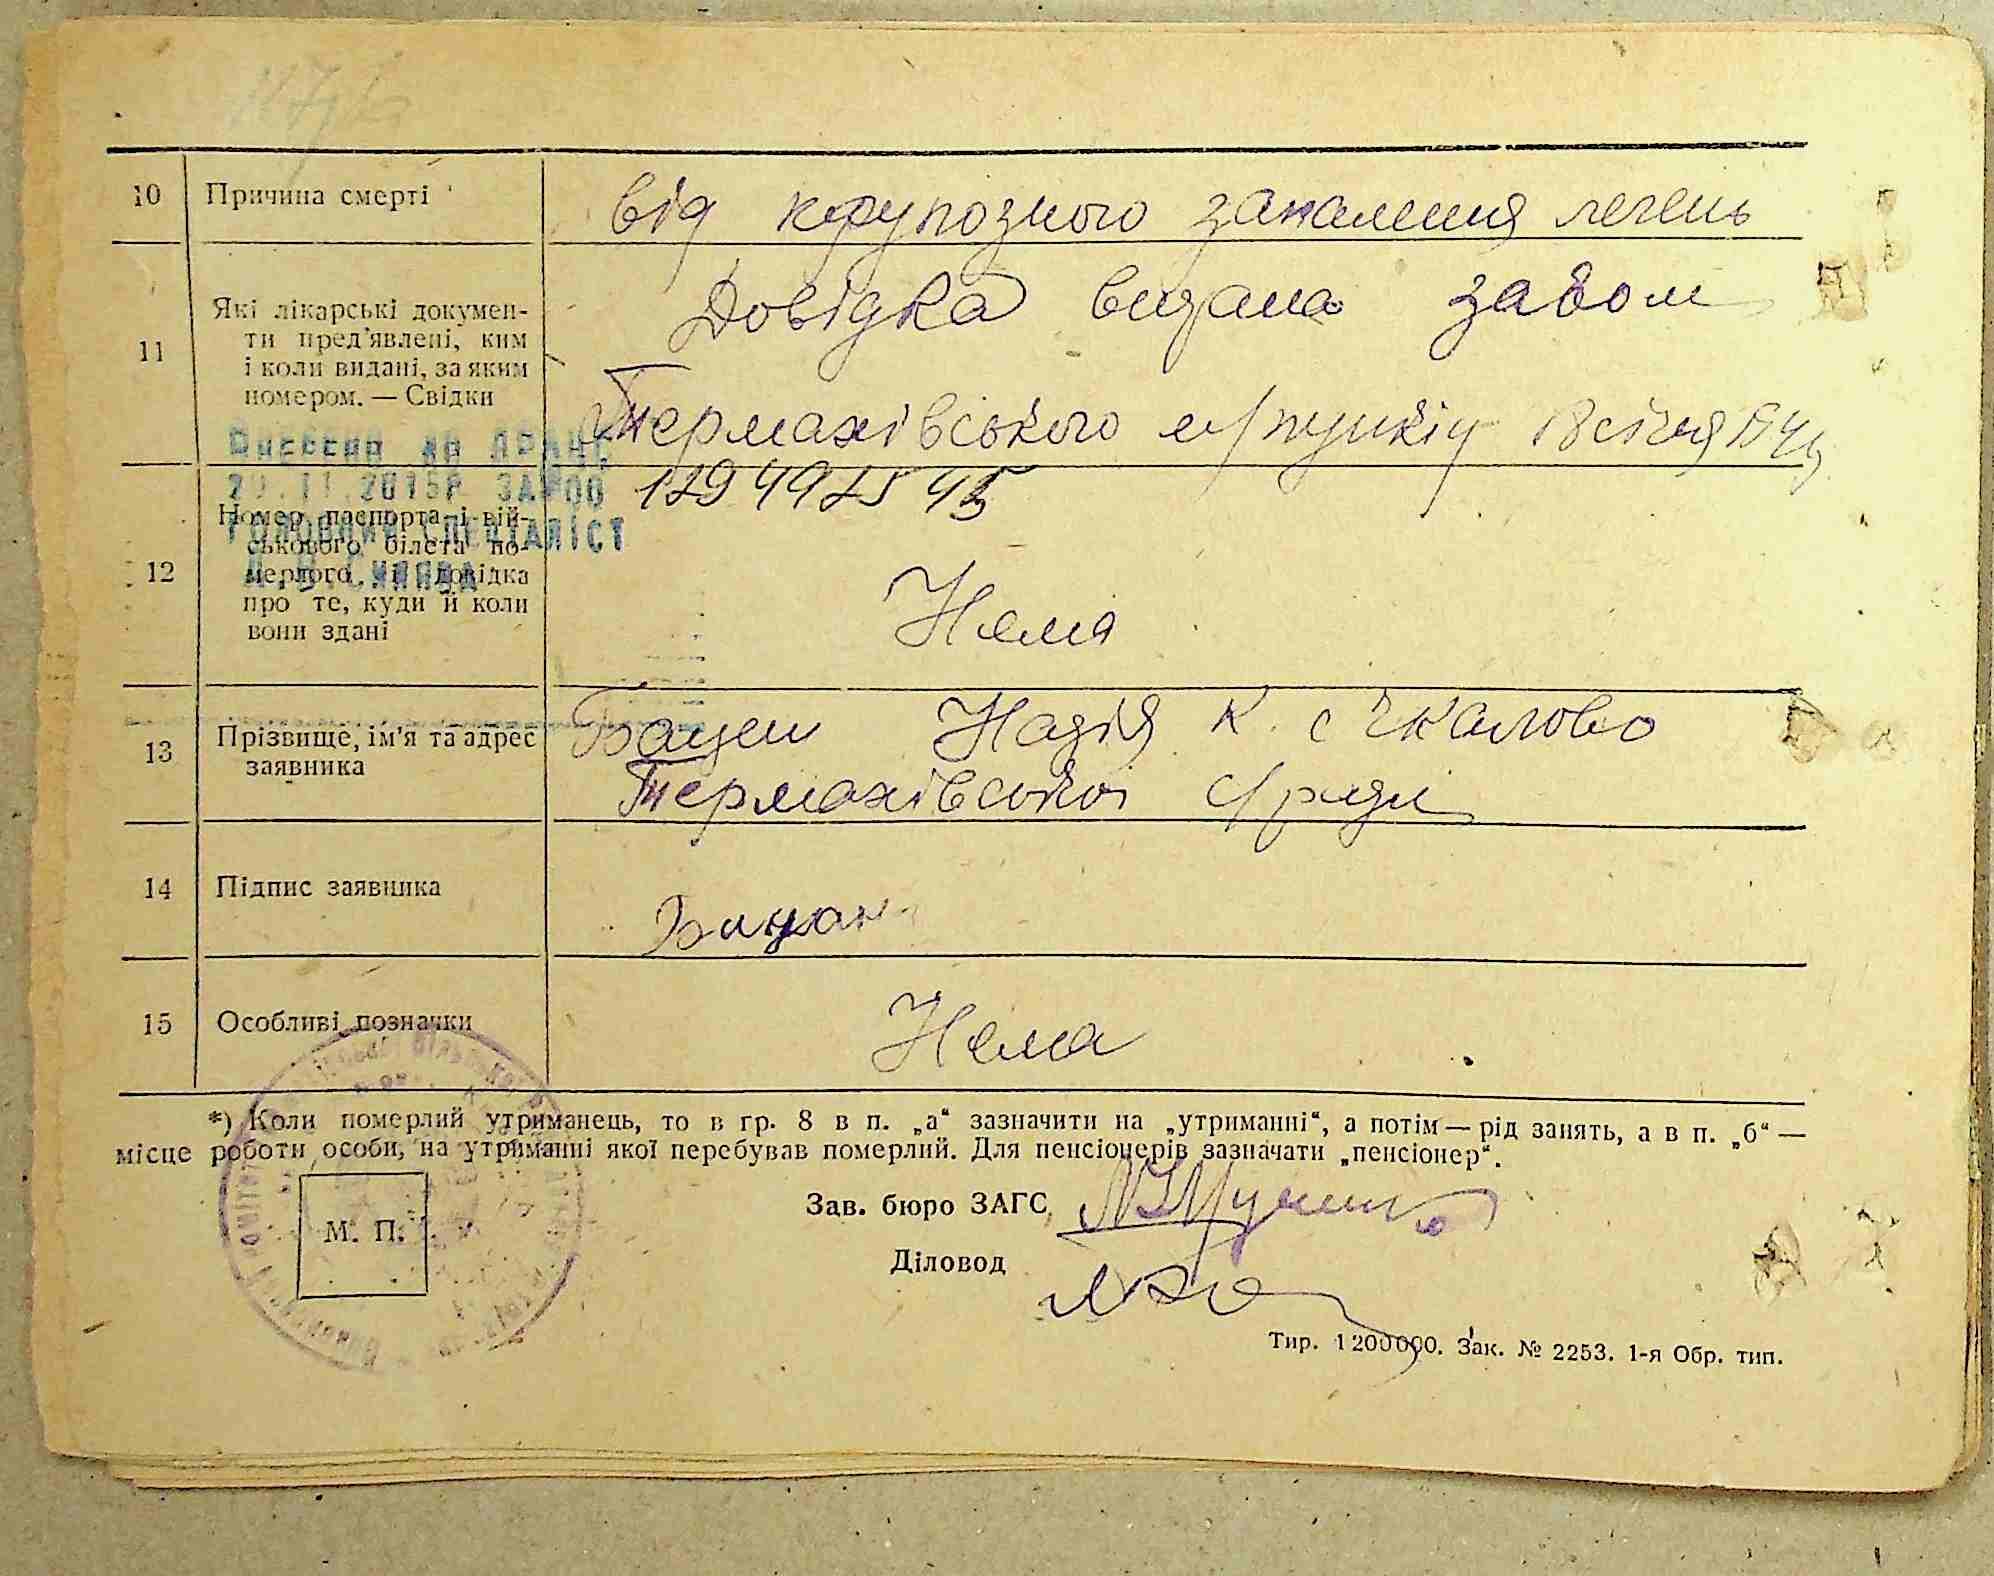 10 Причина смерті
від крупозного запалення легень
11 Які лікарські докумен-
ти пред'явлені, ким
і коли видані, за яким
номером. — Свідки
Довідка видана завом
Термахівського м/пункту 18 січня
Внесено до ДРАЦС
ГОЛОВНИЙ СПЕЦІАЛІСТ
12 Номер паспорта і вій-
ськового білета по-
мерлого, чи довідка
про те, куди й коли
вони здані
Нема
13 Прізвище, ім'я та адрес
заявника
Бацен Надія К. с Чкалово
Термахівської с/ради
14 Підпис заявника
15 Особливі позначки
Нема
*) Коли померлий утриманець, то в гр. 8 в п. „а“ зазначити на „утриманні“, а потім — рід занять, а в п. „б“ —
місце роботи особи, на утриманні якої перебував померлий. Для пенсіонерів зазначати „пенсіонер“.
М. П.
Зав. бюро ЗАГС
Діловод
Тир. 1200000. Зак. № 2253. 1-я Обр. тип.